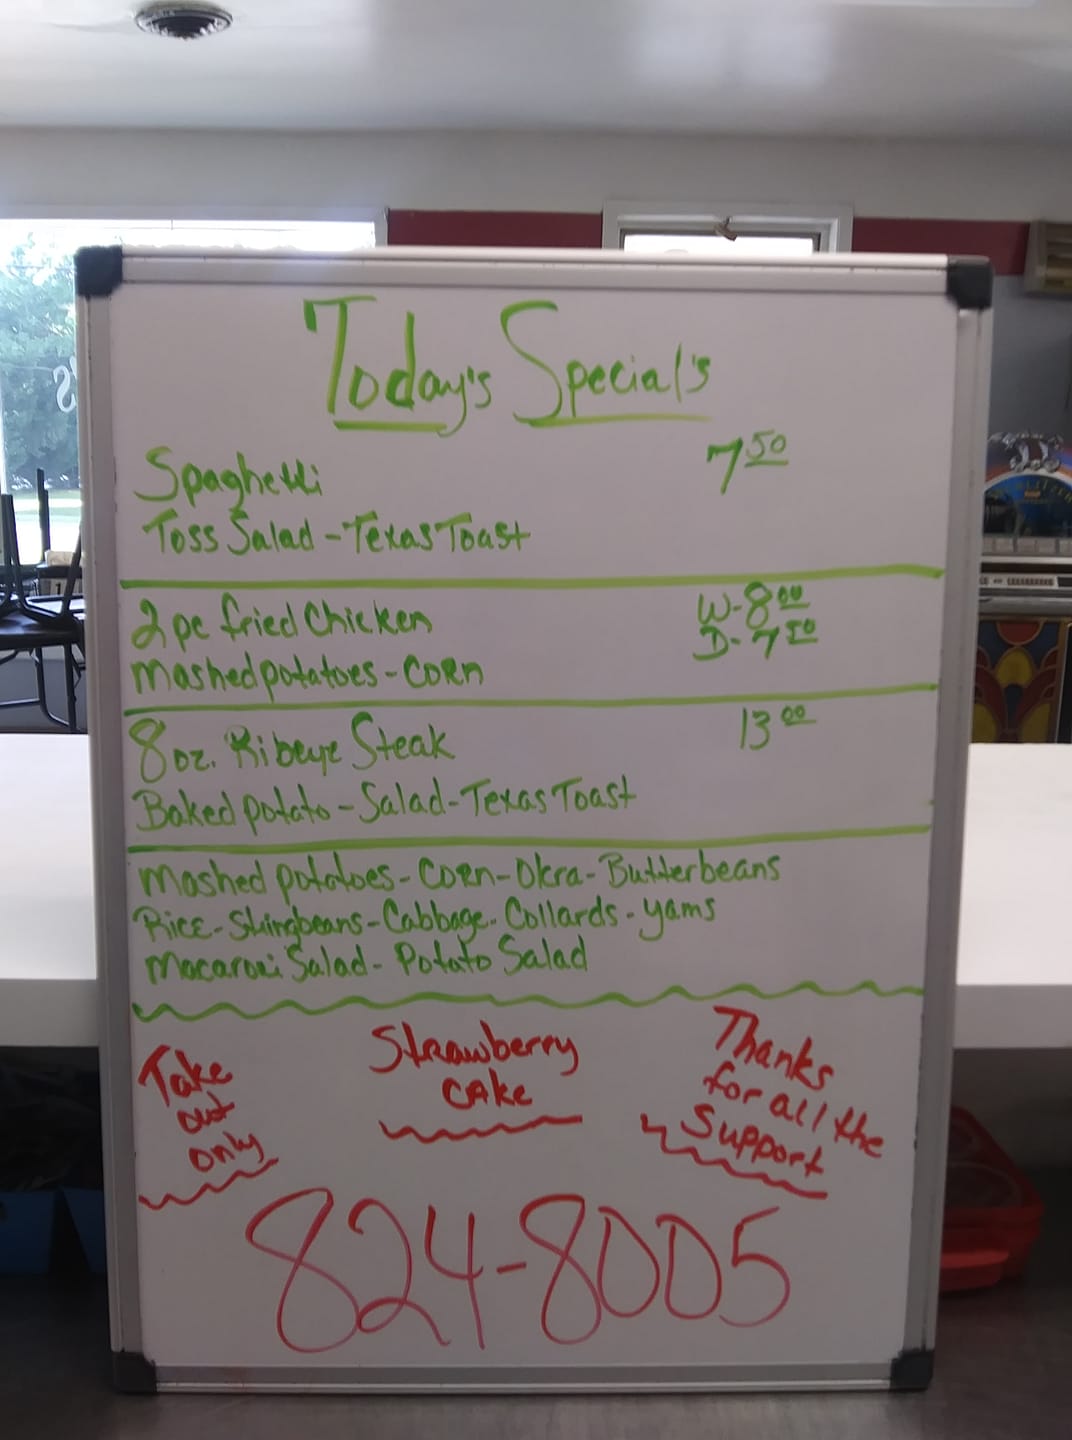 Today's Special's
Spaghetti 7 50
Toss Salad - Texas Toast
2 pc fried Chicken W- 8 00
D- 7 50
Mashed potatoes - Corn
8 oz. Ribeye Steak 13 00
Baked potato - Salad - Texas Toast
Mashed potatoes - Corn - Okra - Butterbeans
Rice - Stringbeans - Cabbage - Collards - yams
Macaroni Salad - Potato Salad
Take
out
only
Strawberry
CAKe
Thanks
for all the
Support
824-8005